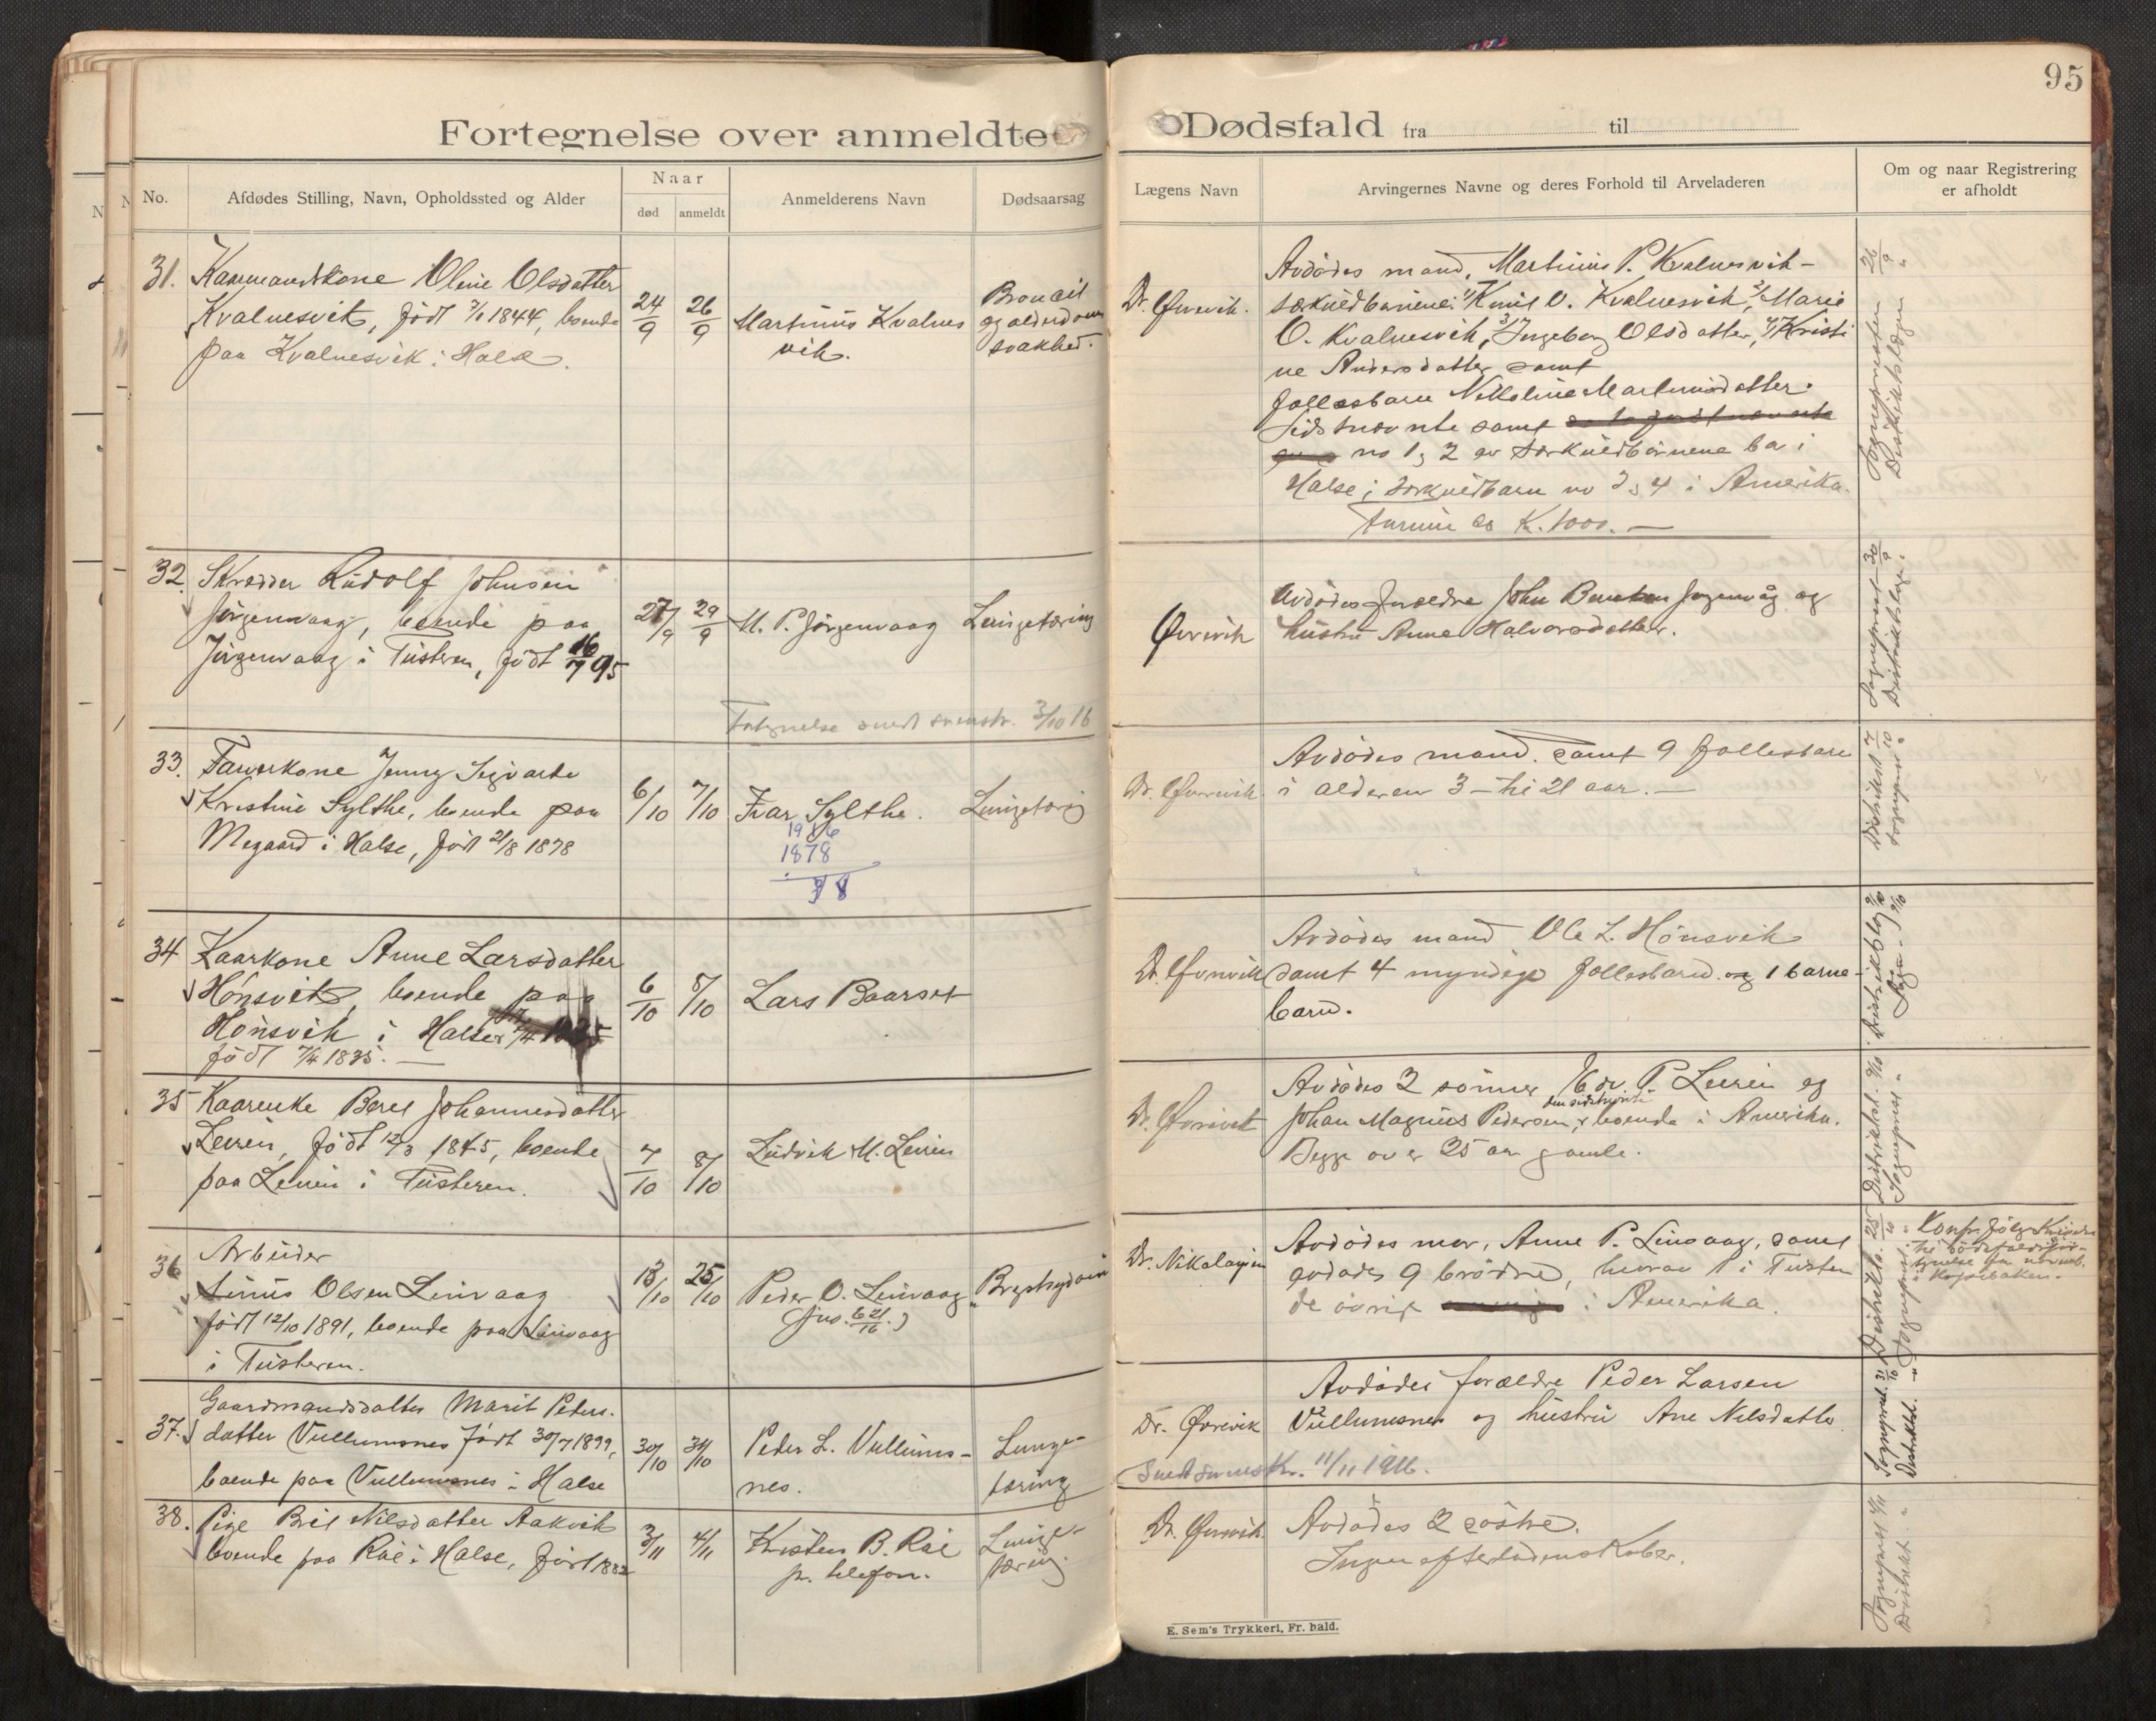 95
Fortegnelse over anmeldte Dødsfald fra til
No.
Afdødes Stilling, Navn, Opholdssted og Alder
Naar
død
anmeldt
Anmelderens Navn
Dødsaarsag
Lægens Navn
Arvingernes Navne og deres Forhold til Arveladeren
Om og naar Registrering
er afholdt
31. Kaarmandskone Oline Olsdatter
Kvalnesvik, født 1844, boende
paa Kvalnesvik i Halse.
24/9
26/9
Martinus Kvalnes
vik.
Broncit
og alderdoms
svakhed.
Dr. Øvrevik.
Avdødes mand, Martinus P. Kvalnesvik -
særkuldbarnene: 1) Knut O. Kvalnesvik, 2) Marie
O. Kvalnesvik, 3) Ingeborg Olsdatter, 4) Kristi
ne Andersdatter samt
fællesbarn Nikoline Martinusdatter.
Sidstnævnte samt
no 1 og 2 av særkuldbørnene bor i
Halse; særkuldbarn no 3 og 4 i Amerika.
K. 1000.-
Sognepresten 26/9
Distriktslægen "
32. Skrædder Rudolf Johnsen
Jørgenvaag, boende paa
Jørgenvaag i Tusteren, født 16/7 95
27/9
29/9
M. P. Jørgenvaag
Lungetæring
Øvrevik
Avdødes forældre John Jørgenvåg og
hustru Anne Halvorsdatter.
Sogneprest 30/9
Distriktslæge "
sendt 3/10 16
33. Farverkone Jenny Sigvarda
Kristine Sylthe, boende paa
Megaard i Halse, født 21/8 1878
6/10
7/10
Ivar Sylthe.
Lungetæring
1916
1878
38
Dr. Øvrevik
Avdødes mand samt 9 fællesbarn
i alderen 3 - til 21 aar. -
Distriktsl. 7/10
Sogneprest "
34 Kaarkone Anne Larsdatter
Hønsvik, boende paa
Hønsvik i Halse
født 7/4 1835. -
6/10
8/10
Lars Baarset
Dr. Øvrevik
Avdødes mand Ole L. Hønsvik
samt 4 myndige fællesbarn og 1 barne-
barn.
35 Kaarenke Beret Johannesdatter
Leirin, født 12/3 1845, boende
paa Leirin i Tusteren.
7/10
8/10
Ludvik M. Leirin
Dr. Øvrevik
Avdødes 2 sønner P. Leirin og
den sidstnævnte
Johan Magnus Pedersen, boende i Amerika.
Begge over 25 aar gamle.
Distriktsl.
Sogneprest "
36 Arbeider
Linus Olsen Linvaag
født 12/10 1891, boende paa Linvaag
i Tusteren.
13/10
25/10
Peder O. Linvaag
(jno. 621/16.)
Brystsydom
Dr. Nikolaysen
Avdødes mor, Anne P. Linvaag, samt
avdødes 9 brødre, herav 1 i Tusteren
de øvrige i Amerika.
Distriktsl. 25/10
Sogneprest "
37. Gaardmandsdatter Marit Peders-
datter Vullumsnes født 30/7 1899,
boende paa Vullumsnes i Halse
30/10
31/10
Peder L. Vullums-
nes.
Lunge-
tæring
Dr. Øvrevik
Avdødes forældre Peder Larsen
Vullumsnes og hustru Ane Nilsdatter
11/11 1916.
Sogneprest 31/10
Distriktsl. "
38. Pige Brit Nilsdatter Aakvik
boende paa Roe i Halse, født 1882
3/11
4/11
Kristen B. Roe
pr. telefon.
Lunge-
tæring.
Dr. Øvrevik
Avdødes 2 søstre.
Ingen efterladenskaber.
Sogneprest 4/11
Distriktsl. "
E. Sem's Trykkeri, Fr. hald.